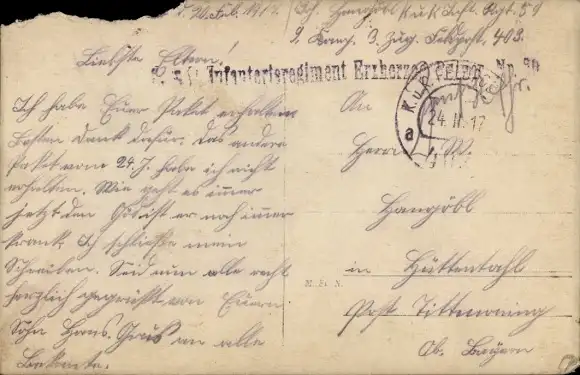 20. Feb. 1917.
Sch. Hangöbl k.u.k. Inft. Rgt. 59
9. Komp. 3. Zug. Feldpost. 403.
Liebste Eltern!
Infanterieregiment Erzherzog Nr. 59
Ich habe Euer Paket erhalten
besten Dank dafür. Das andere
Paket vom 24. J. habe ich nicht
erhalten. Wie geht es immer
jetzt den ist er noch immer
krank. Ich schließe mein
Schreiben. Seid nun alle recht
herzlich gegrüßt von Euern
Sohn Hans. Gruß an alle
Bekante.
K.u.K.
24. II. 17
a
An
Herrn W.
Hangöbl
in Hüttenthal
M. B. N.
Post Tittmoning
Ob. Bayern